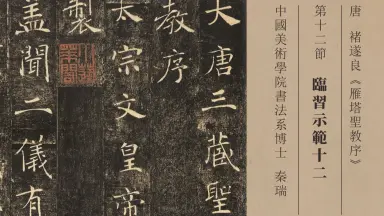 唐 褚遂良《雁塔聖教序》
第十二節 臨習示範十二
中國美術學院書法系博士 秦瑞
大唐三藏聖
教序
太宗文皇帝
製
蓋聞二儀有